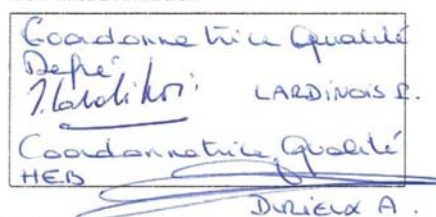 Coordonnatrice Qualité
Defré
LARDINOIS I.
Coordonnatrice Qualité
HEB
DIRIEUX A.